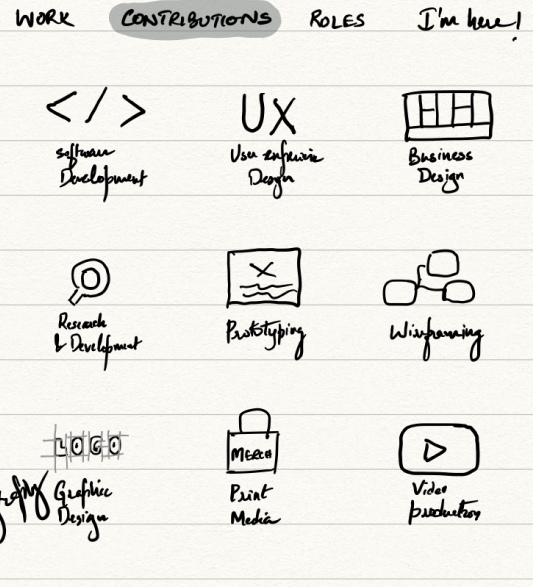 WORK CONTRIBUTIONS ROLES I'm here!
</> UX
Software Development
User experience Design
Business Design
Research & Development
Prototyping
Wireframing
LOGO
MERCH
Graphic Design
Print Media
Video production